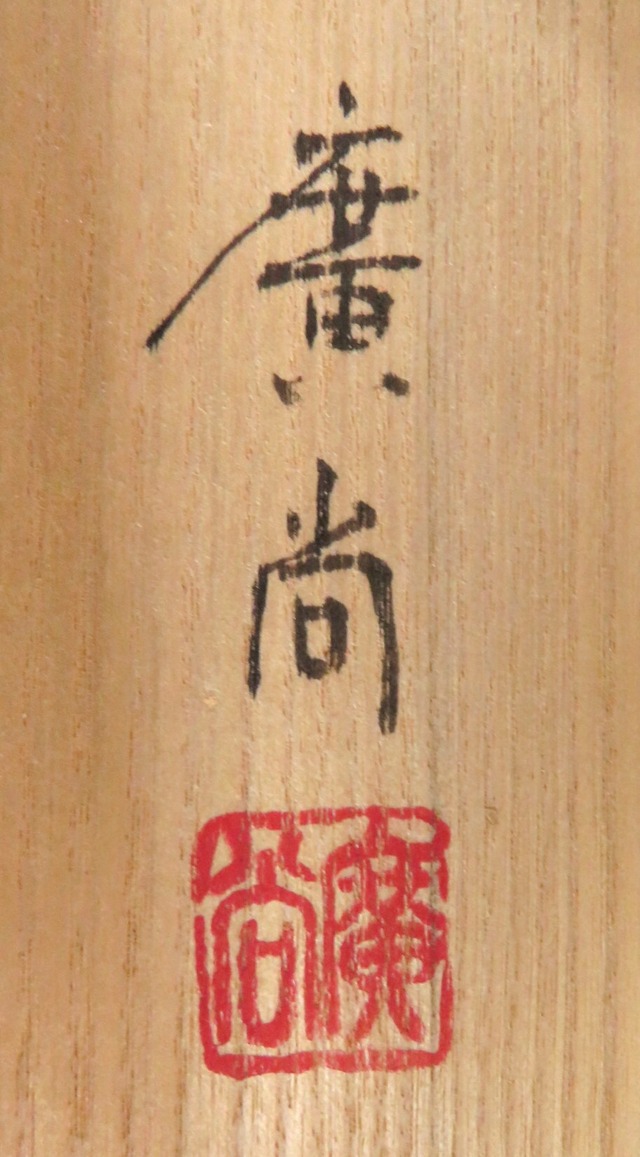 廣尚
廣尚